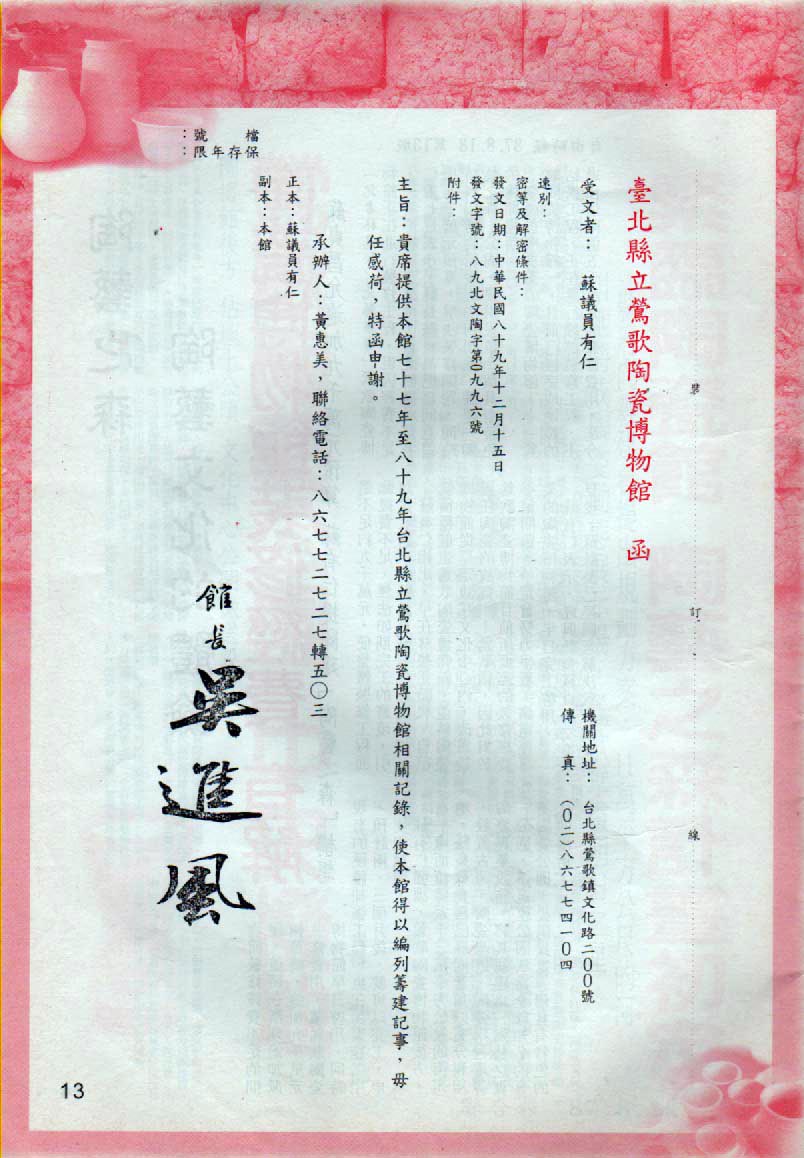 檔　　號：
保存年限：
裝
訂
線
臺北縣立鶯歌陶瓷博物館　函
機關地址：台北縣鶯歌鎮文化路二００號
傳　真：（０二）八六七七四一０四
受文者：蘇議員有仁
速別：
密等及解密條件：
發文日期：中華民國八十九年十二月十五日
發文字號：八九北文陶字第０九九六號
附件：
主旨：貴席提供本館七十七年至八十九年台北縣立鶯歌陶瓷博物館相關記錄，使本館得以編列籌建記事，毋
任感荷，特函申謝。
承辦人：黃惠美，聯絡電話：八六七七二七二七轉五〇三
正本：蘇議員有仁
副本：本館
館長 吳進風
13